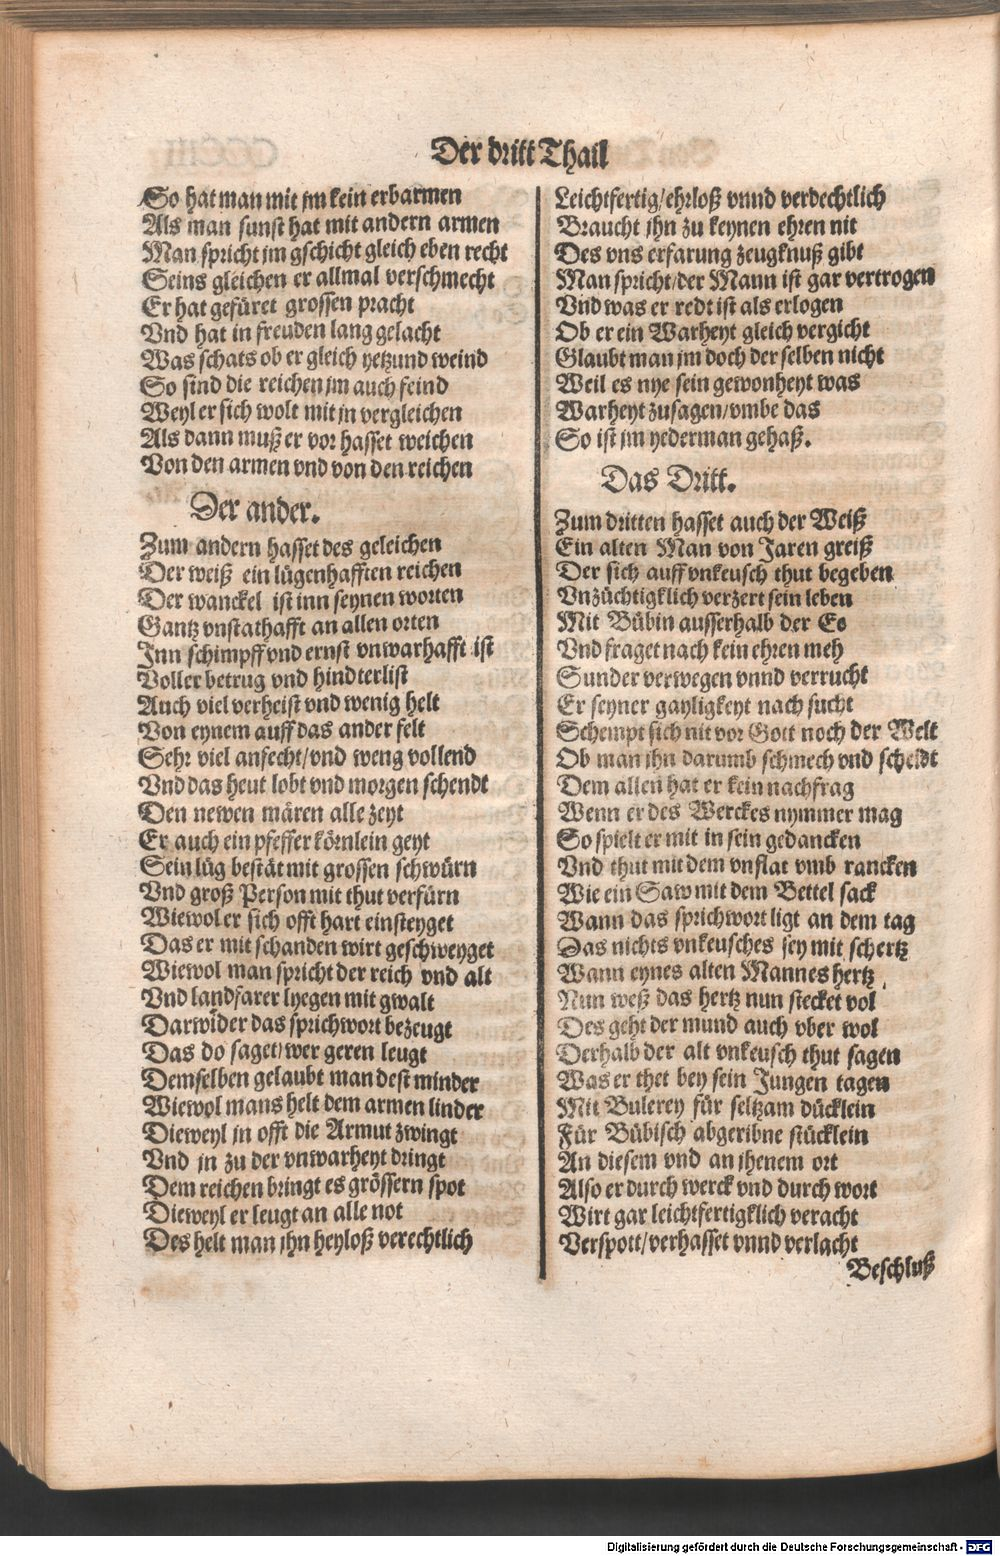 Der dritt Thail
So hat man mit jm kein erbarmen
Als man sunst hat mit andern armen
Man spricht jm gschicht gleich eben recht
Seins gleichen er allmal verschmecht
Er hat gefüret grossen pracht
Vnd hat in freuden lang gelacht
Was schats ob er gleich yetzund weind
So sind die reichen jm auch feind
Weyl er sich wolt mit jn vergleichen
Als dann muß er vor hasset weichen
Von den armen vnd von den reichen
Der ander.
Zum andern hasset des geleichen
Der weiß ein lügenhafften reichen
Der wanckel ist inn seynen worten
Gantz vnstathafft an allen orten
Inn schimpff vnd ernst vnwarhafft ist
Voller betrug vnd hindterlist
Auch viel verheist vnd wenig helt
Von eynem auff das ander felt
Sehr viel anfecht/vnd weng vollend
Vnd das heut lobt vnd morgen schendt
Den newen mären alle zeyt
Er auch ein pfefferkörnlein geyt
Sein lüg bestät mit grossen schwürn
Vnd groß Person mit thut verfürn
Wiewol er sich offt hart einsteyget
Das er mit schanden wirt geschweyget
Wiewol man spricht der reich vnd alt
Vnd landfarer lyegen mit gwalt
Darwider das sprichwort bezeugt
Das do saget/wer geren leugt
Demselben gelaubt man dest minder
Wiewol mans helt dem armen linder
Dieweyl jn offt die Armut zwingt
Vnd jn zu der vnwarheyt dringt
Dem reichen bringt es grössern spot
Dieweyl er leugt an alle not
Des helt man jhn heyloß verechtlich
Leichtfertig/ehrloß vnnd verdechtlich
Braucht jhn zu keynen ehren nit
Des vns erfarung zeugknuß gibt
Man spricht/der Mann ist gar vertrogen
Vnd was er redt ist als erlogen
Ob er ein Warheyt gleich vergicht
Glaubt man jm doch der selben nicht
Weil es nye sein gewonheyt was
Warheyt zusagen/vmbe das
So ist jm yederman gehaß.
Das Dritt.
Zum dritten hasset auch der Weiß
Ein alten Man von Jaren greiß
Der sich auff vnkeusch thut begeben
Vnzüchtigklich verzert sein leben
Mit Bübin ausserhalb der Ee
Vnd fraget nach kein ehren meh
Sunder verwegen vnnd verrucht
Er seyner gayligkeyt nach sucht
Schempt sich nit vor Gott noch der Welt
Ob man jhn darumb schmech vnd scheldt
Dem allen hat er kein nachfrag
Wenn er des Werckes nymmer mag
So spielt er mit in sein gedancken
Vnd thut mit dem vnflat vmb rancken
Wie ein Saw mit dem Bettel sack
Wann das sprichwort ligt an dem tag
Das nichts vnkeusches sey mit schertz
Wann eynes alten Mannes hertz
Nun weß das hertz nun stecket vol
Des geht der mund auch vber wol
Derhalb der alt vnkeusch thut sagen
Was er thet bey sein Jungen tagen
Mit Bulerey für seltzam dücklein
Für Bübisch abgeribne stücklein
An diesem vnd an jhenem ort
Also er durch werck vnd durch wort
Wirt gar leichtfertigklich veracht
Verspott/verhasset vnnd verlacht
Beschluß
Digitalisierung gefördert durch die Deutsche Forschungsgemeinschaft - DFG